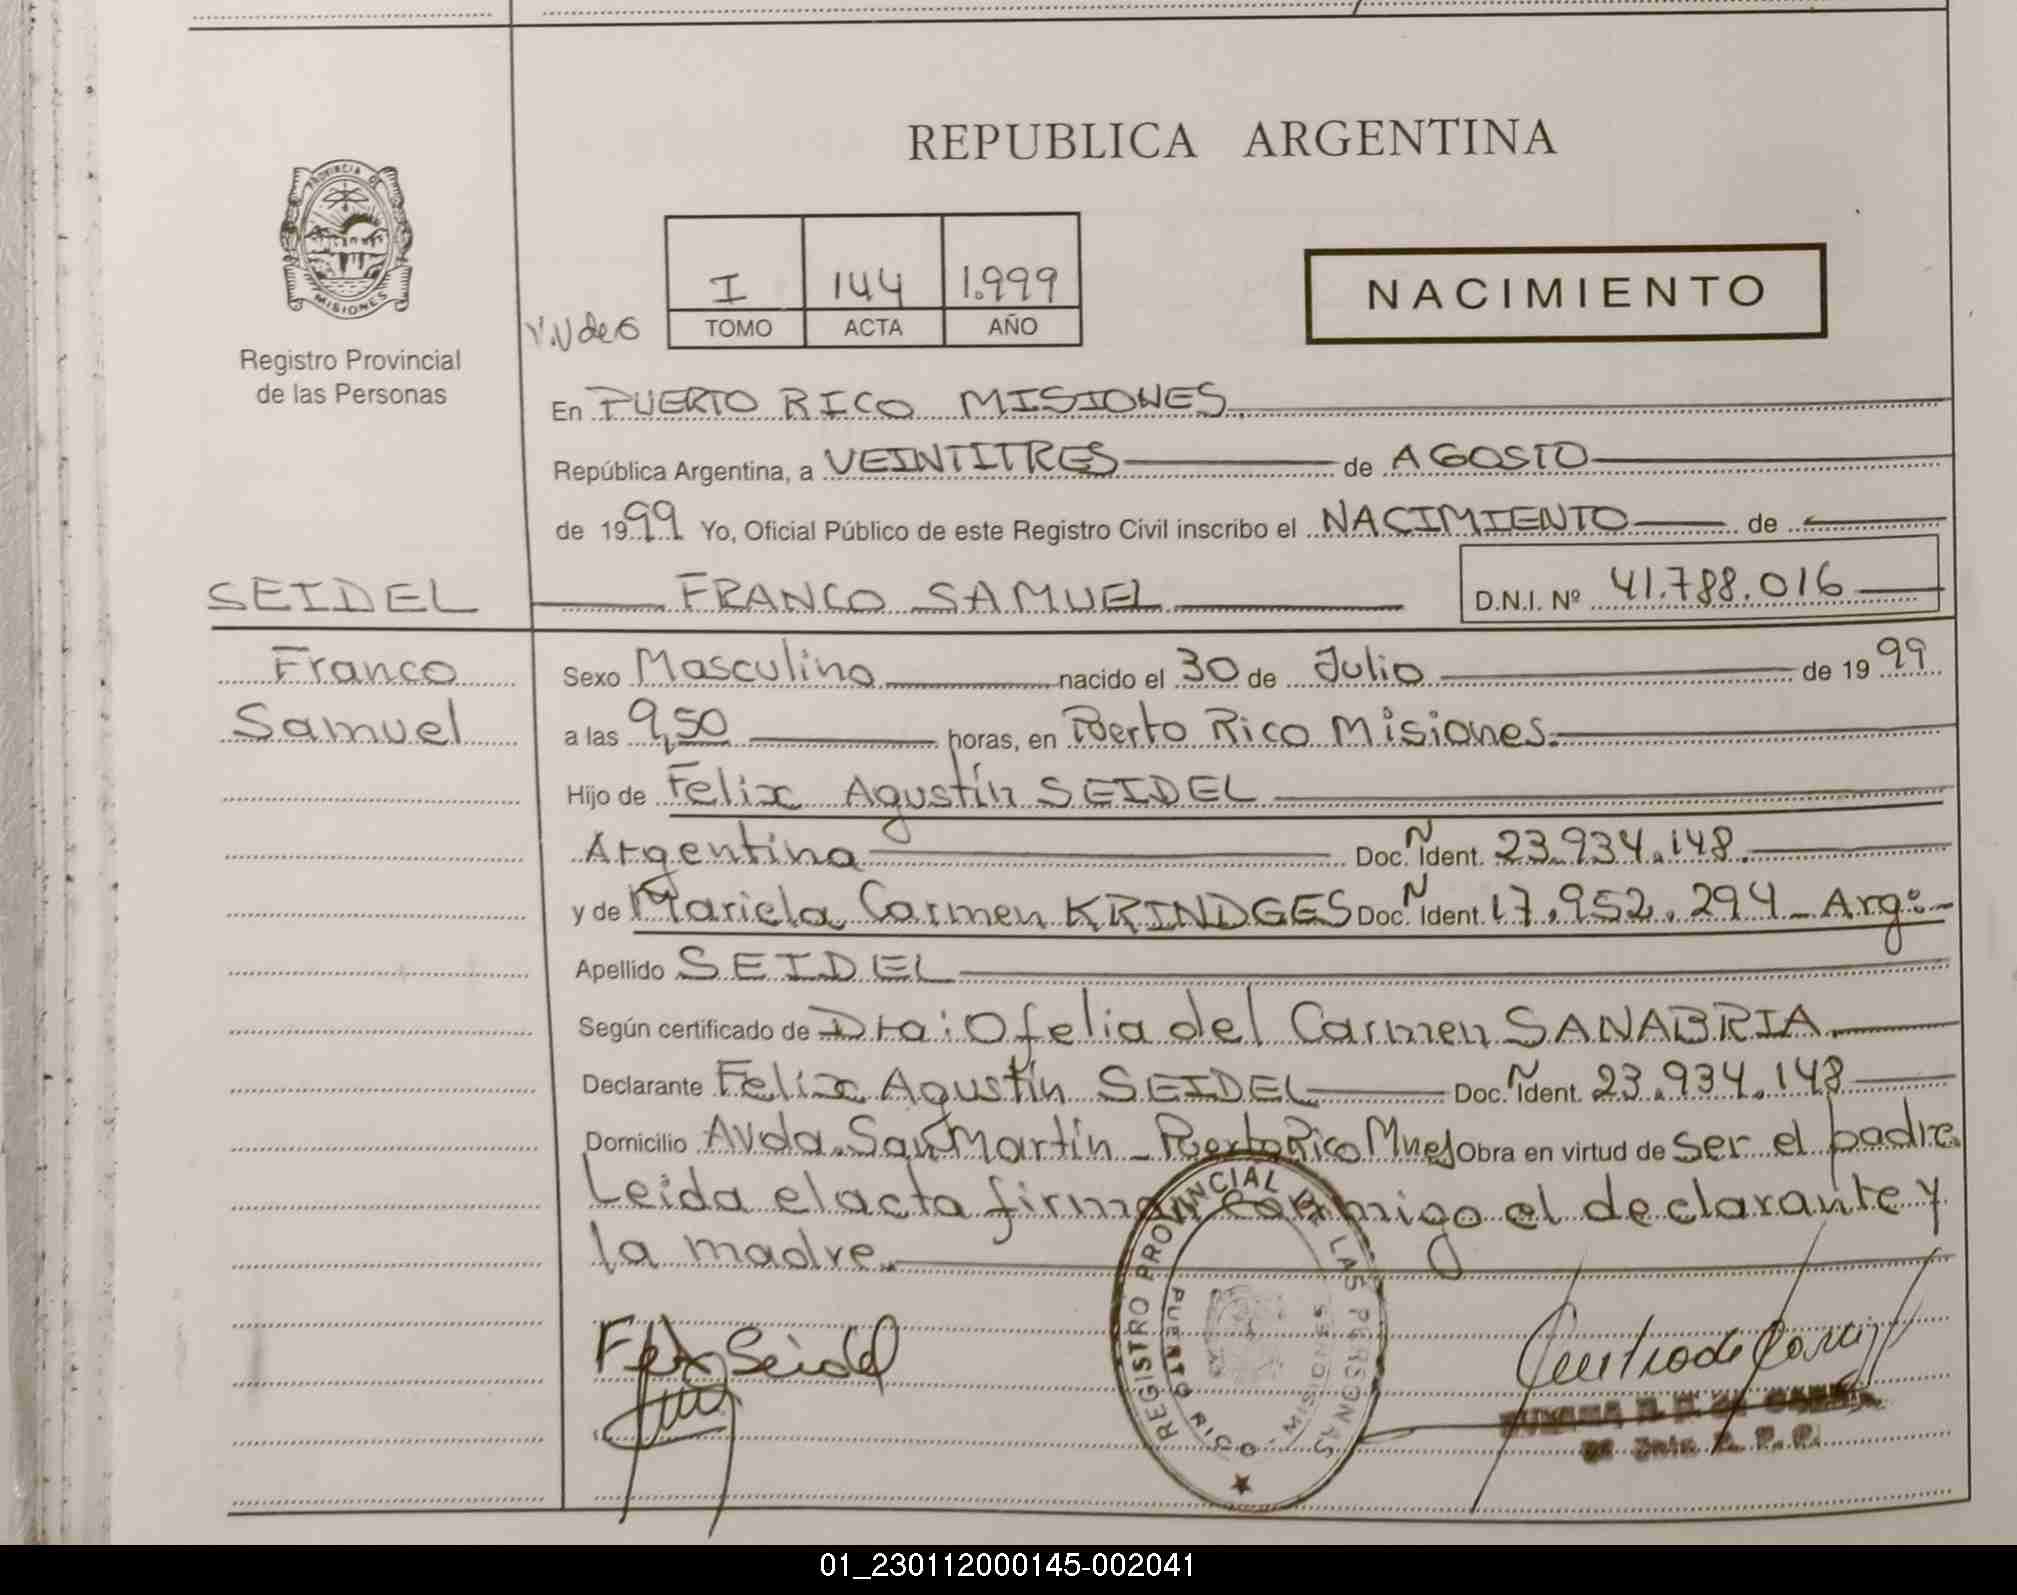 REPUBLICA ARGENTINA
PROVINCIA DE
MISIONES
Registro Provincial
de las Personas
I 144 1.999
TOMO ACTA AÑO
NACIMIENTO
En PUERTO RICO MISIONES
República Argentina, a VEINTITRES de AGOSTO
de 1999 Yo, Oficial Público de este Registro Civil inscribo el NACIMIENTO de
SEIDEL FRANCO SAMUEL D.N.I. Nº 41.788.016
Franco
Samuel
Sexo Masculino nacido el 30 de Julio de 1999
a las 9,50 horas, en Puerto Rico Misiones.
Hijo de Felix Agustín SEIDEL
Argentina Doc. Ñ Ident. 23.934.148.
y de Mariela Carmen KRINDGES Doc. Ñ Ident. 17.952.294 - Arg:-
Apellido SEIDEL
Según certificado de Dra: Ofelia del Carmen SANABRIA.
Declarante Felix Agustín SEIDEL Doc. Ñ Ident. 23.934.148
Domicilio Avda. San Martín - Puerto Rico Mnes Obra en virtud de ser el padre.
Leida el acta firman conmigo el declarante y
la madre.
Felix Seidel
REGISTRO PROVINCIAL DE LAS PERSONAS
PUERTO RICO
MISIONES
01_230112000145-002041